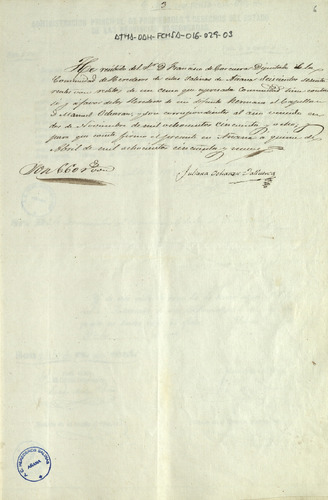 2
6
ATHA-DAH-FCMSA-016-029-03
He recibido del Sr. D. Francisco de Diputado de la
Comunidad de Herederos de estas Salinas de Añana seiscientos sesenta
reales vellon reditos de un censo que expresada Comunidad tiene contra
si y a favor de los Herederos de mi difunto Hermano el Capellan
D. Manuel y son correspondientes al año vencido en
dos de Noviembre de mil ochocientos cincuenta y ocho,
y para que conste firmo el presente en Añana a quince de
Abril de mil ochocientos cincuenta y nueve
Son 660 rs. von
Juliana
AÑANA